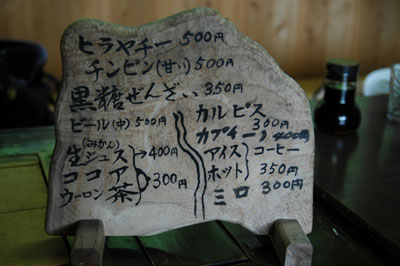 ヒラヤチー500円
チンピン(甘い)500円
黒糖ぜんざい350円
ビール(中)500円
(みかん)
生ジュース→400円
ココア
ウーロン茶 300円
カルピス
300円
カプチーノ400円
アイス コーヒー
ホット 350円
ミロ 300円